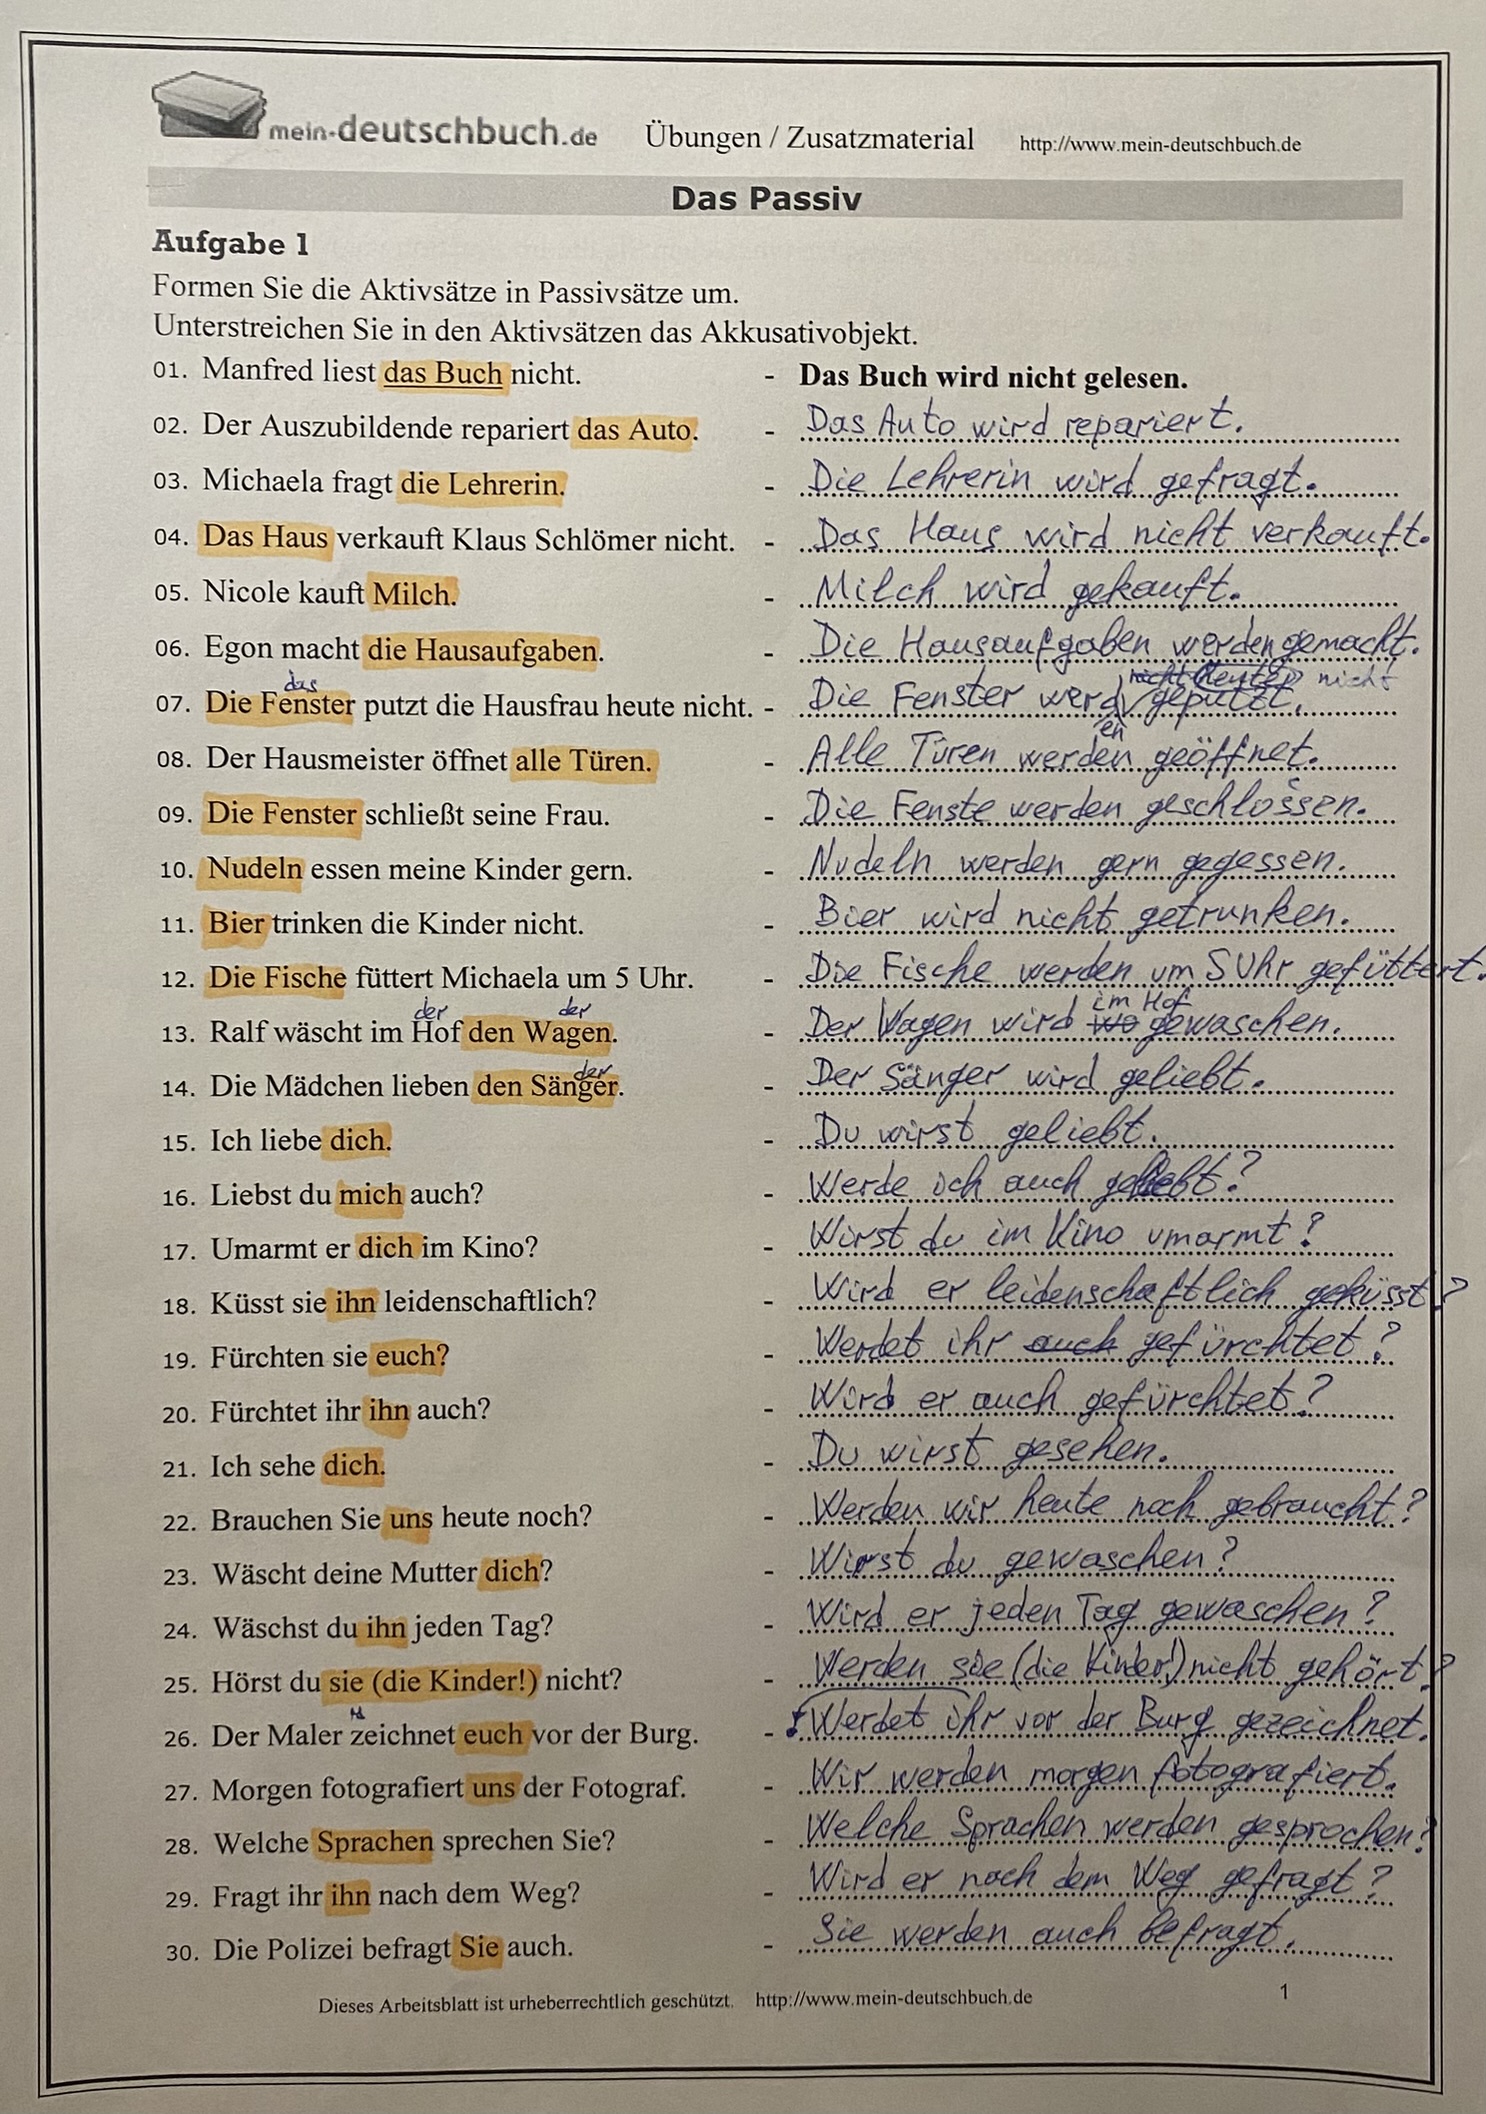 mein-deutschbuch.de Übungen / Zusatzmaterial http://www.mein-deutschbuch.de
Das Passiv
Aufgabe 1
Formen Sie die Aktivsätze in Passivsätze um.
Unterstreichen Sie in den Aktivsätzen das Akkusativobjekt.
01. Manfred liest das Buch nicht. - Das Buch wird nicht gelesen.
02. Der Auszubildende repariert das Auto. - Das Auto wird repariert.
03. Michaela fragt die Lehrerin. - Die Lehrerin wird gefragt.
04. Das Haus verkauft Klaus Schlömer nicht. - Das Haus wird nicht verkauft.
05. Nicole kauft Milch. - Milch wird gekauft.
06. Egon macht die Hausaufgaben. - Die Hausaufgaben werden gemacht.
das nicht heute nicht
07. Die Fenster putzt die Hausfrau heute nicht. - Die Fenster werd geputzt.
en
08. Der Hausmeister öffnet alle Türen. - Alle Türen werden geöffnet.
09. Die Fenster schließt seine Frau. - Die Fenste werden geschlossen.
10. Nudeln essen meine Kinder gern. - Nudeln werden gern gegessen.
11. Bier trinken die Kinder nicht. - Bier wird nicht getrunken.
12. Die Fische füttert Michaela um 5 Uhr. - Die Fische werden um 5 Uhr gefüttert.
der der im Hof
13. Ralf wäscht im Hof den Wagen. - Der Wagen wird wo gewaschen.
der
14. Die Mädchen lieben den Sänger. - Der Sänger wird geliebt.
15. Ich liebe dich. - Du wirst geliebt.
16. Liebst du mich auch? - Werde ich auch geliebt?
17. Umarmt er dich im Kino? - Wirst du im Kino umarmt?
18. Küsst sie ihn leidenschaftlich? - Wird er leidenschaftlich geküsst?
19. Fürchten sie euch? - Werdet ihr auch gefürchtet?
20. Fürchtet ihr ihn auch? - Wird er auch gefürchtet?
21. Ich sehe dich. - Du wirst gesehen.
22. Brauchen Sie uns heute noch? - Werden wir heute noch gebraucht?
23. Wäscht deine Mutter dich? - Wirst du gewaschen?
24. Wäschst du ihn jeden Tag? - Wird er jeden Tag gewaschen?
25. Hörst du sie (die Kinder!) nicht? - Werden sie (die Kinder!) nicht gehört?
26. Der Maler zeichnet euch vor der Burg. - Werdet ihr vor der Burg gezeichnet.
27. Morgen fotografiert uns der Fotograf. - Wir werden morgen fotografiert.
28. Welche Sprachen sprechen Sie? - Welche Sprachen werden gesprochen?
29. Fragt ihr ihn nach dem Weg? - Wird er nach dem Weg gefragt?
30. Die Polizei befragt Sie auch. - Sie werden auch befragt.
Dieses Arbeitsblatt ist urheberrechtlich geschützt. http://www.mein-deutschbuch.de 1